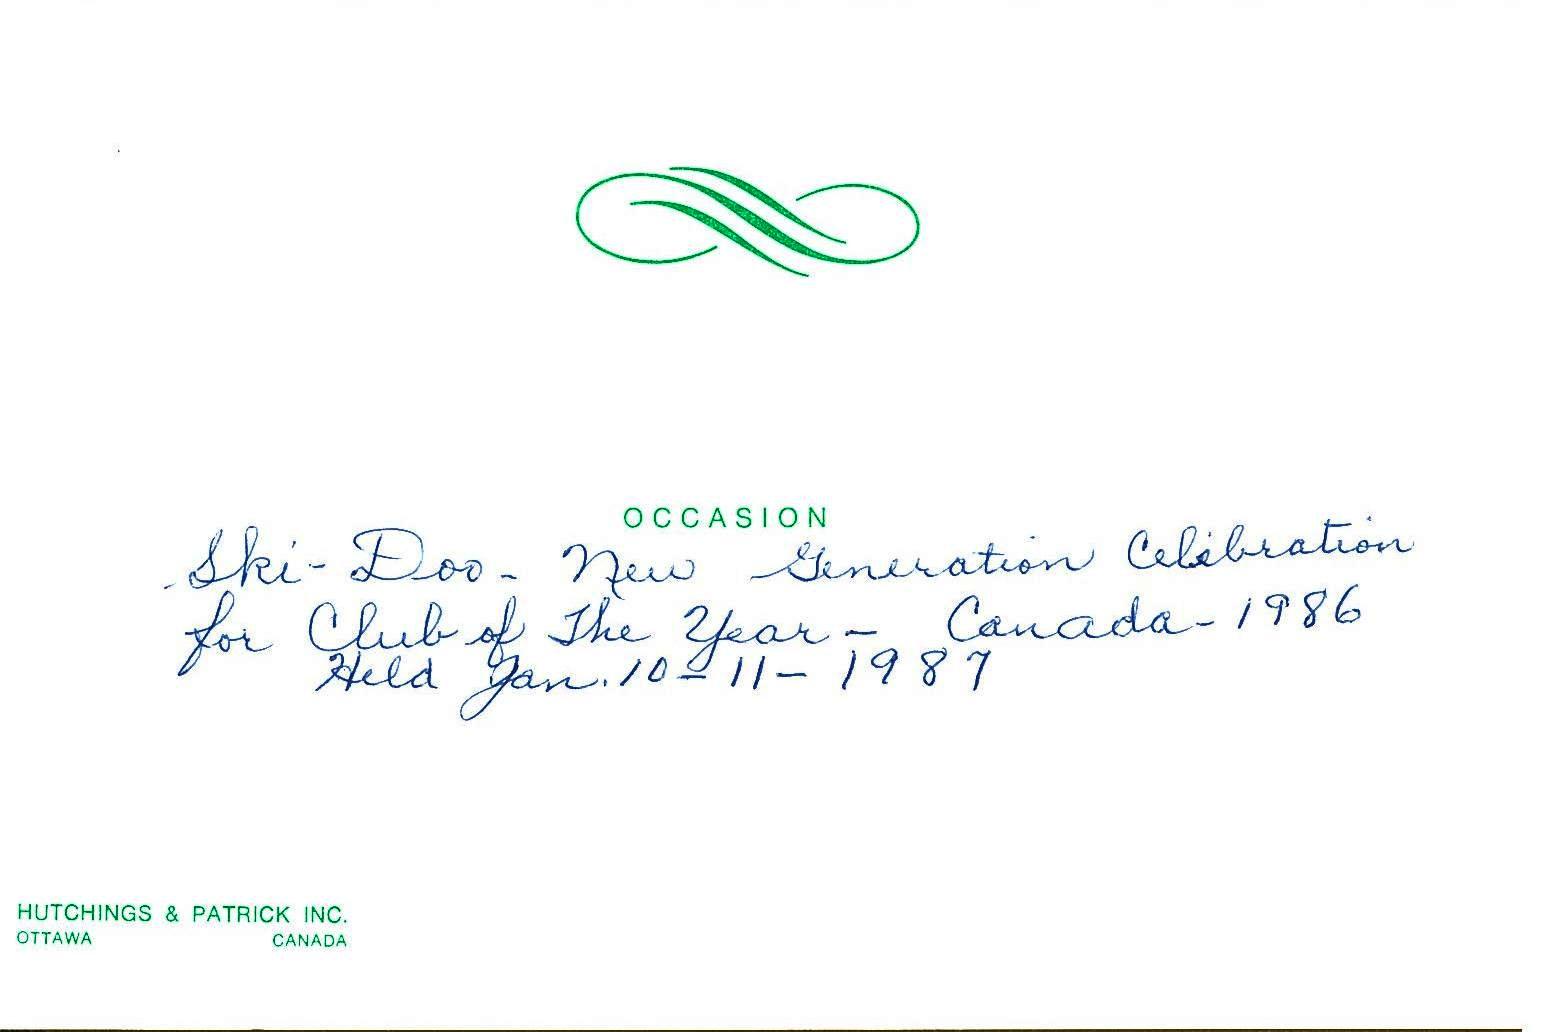 OCCASION
Ski-Doo - New Generation Celebration
for Club of The Year - Canada - 1986
Held Jan. 10 - 11 - 1987
HUTCHINGS & PATRICK INC.
OTTAWA CANADA